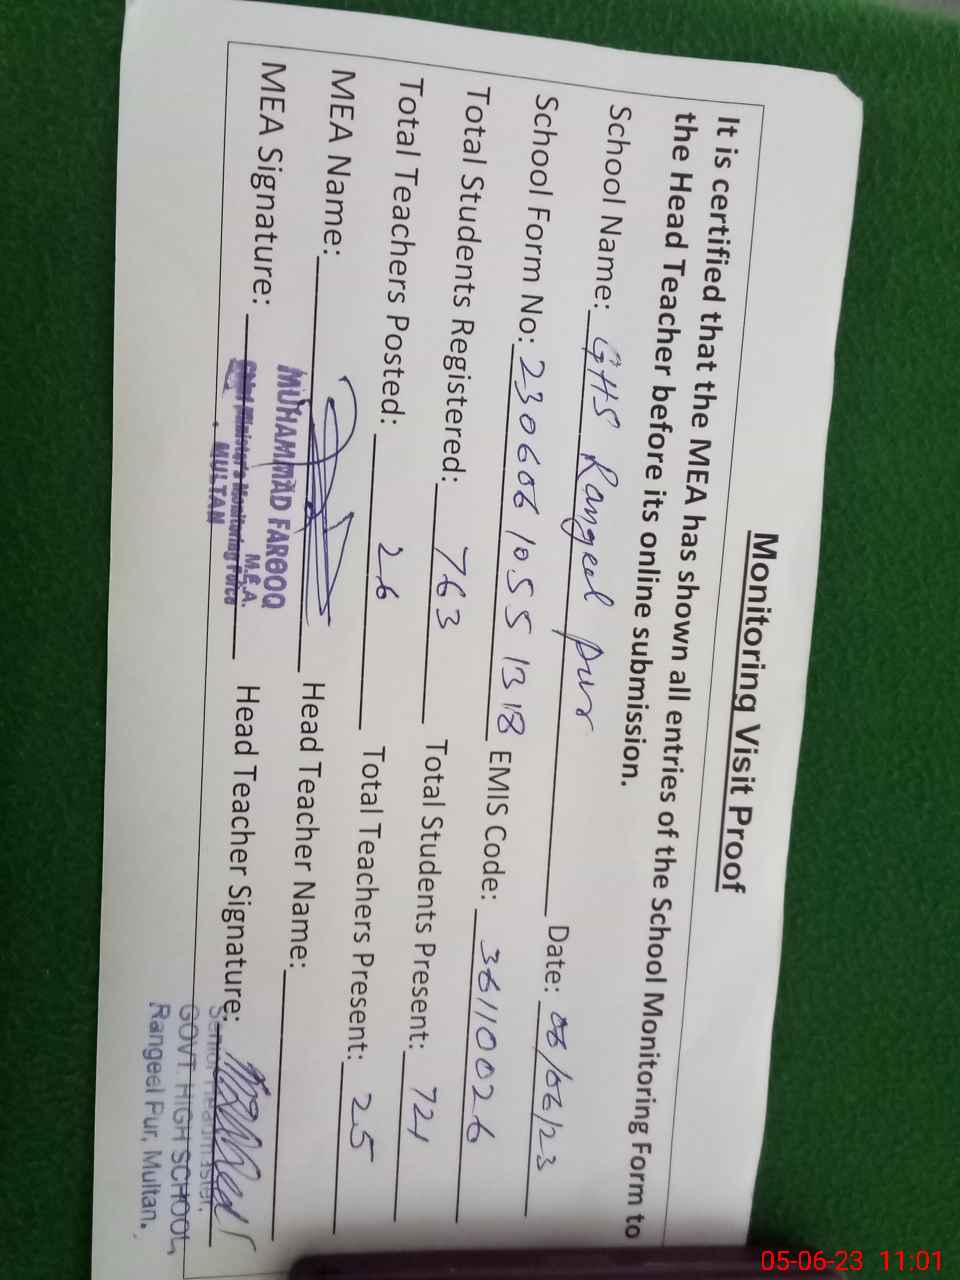 Monitoring Visit Proof
It is certified that the MEA has shown all entries of the School Monitoring Form to
the Head Teacher before its online submission.
School Name: GHS Rangeel pur Date: 06/06/23
School Form No: 230606105513 18 EMIS Code: 36110026
Total Students Registered: 763 Total Students Present: 721
Total Teachers Posted: 26 Total Teachers Present: 25
MEA Name: Head Teacher Name:
MUHAMMAD FAROOQ
M.E.A.
MEA Signature: Head Teacher Signature:
Chief Minister's Monitoring Force
MULTAN
Senior Headmaster,
GOVT. HIGH SCHOOL,
Rangeel Pur, Multan.
05-06-23 11:01